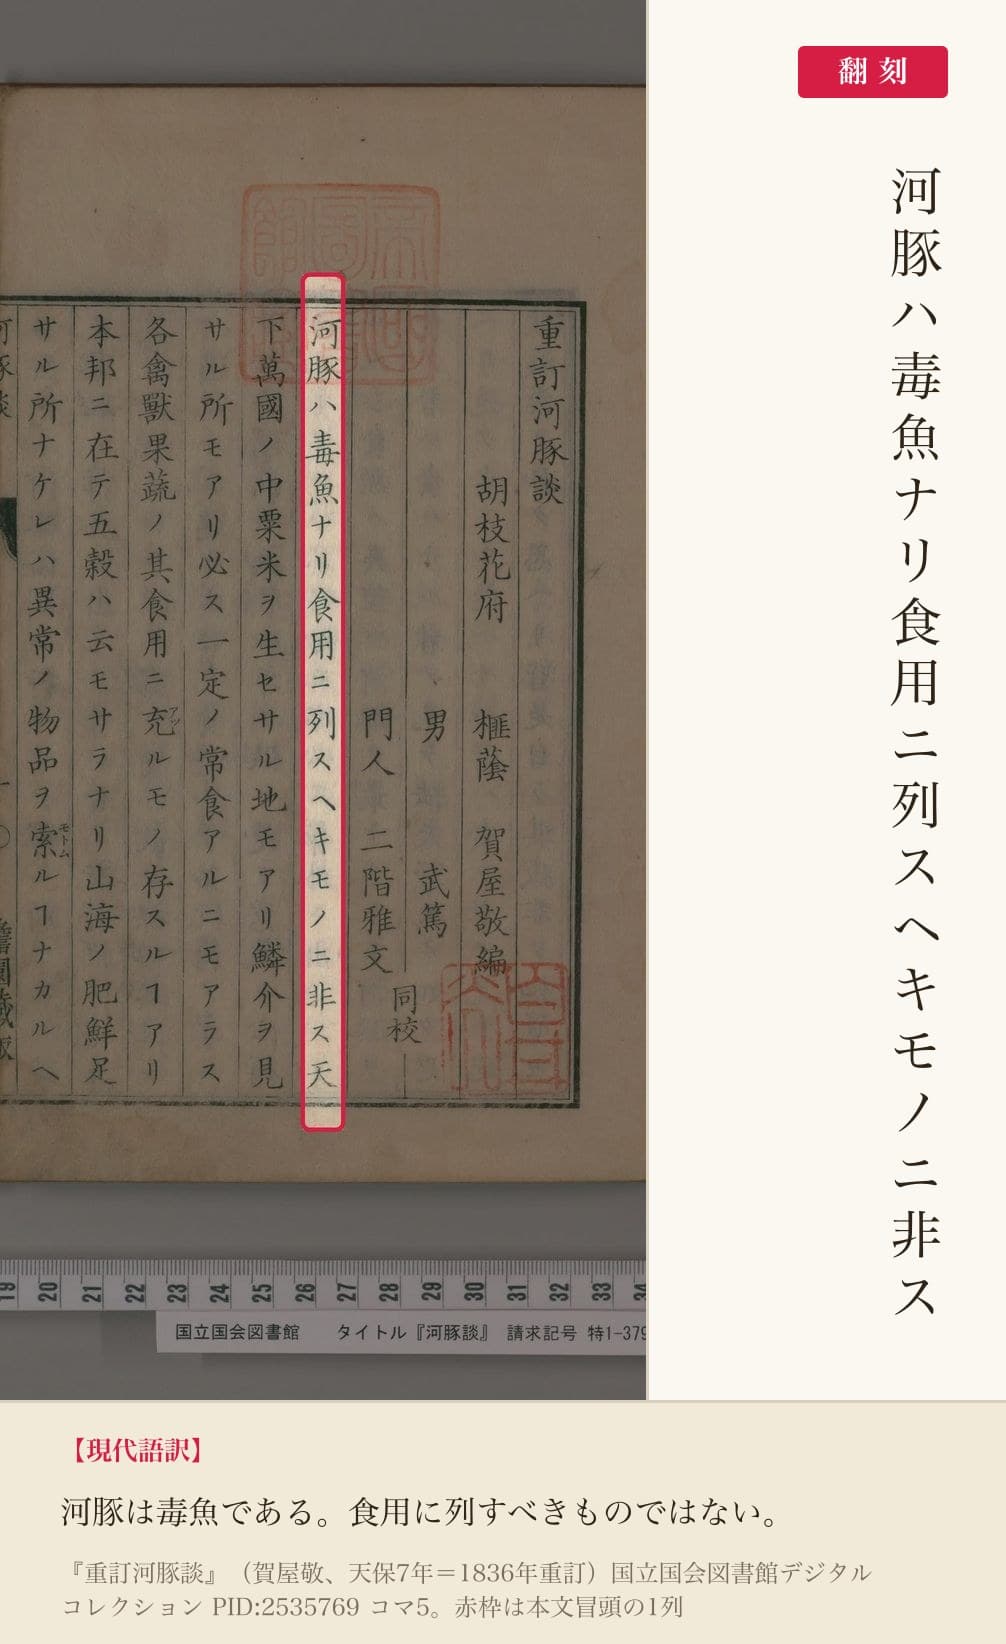 重訂河豚談
胡枝花府 榧蔭 賀屋敬編
男 武篤
門人 二階雅文
同校
河豚ハ毒魚ナリ食用ニ列スヘキモノニ非ス天
下萬國ノ中粟米ヲ生セサル地モアリ鱗介ヲ見
サル所モアリ必ス一定ノ常食アルニモアラス
各禽獸果蔬ノ其食用ニ充ルモノ存スルヿアリ
アツ
本邦ニ在テ五穀ハ云モサラナリ山海ノ肥鮮足
サル所ナケレハ異常ノ物品ヲ索ルヿナカルヘ
モトム
翻刻
河豚ハ毒魚ナリ食用ニ列スヘキモノニ非ス
19 20 21 22 23 24 25 26 27 28 29 30 31 32 33 34
国立国会図書館 タイトル『河豚談』 請求記号 特1-379
【現代語訳】
河豚は毒魚である。食用に列すべきものではない。
『重訂河豚談』（賀屋敬、天保7年＝1836年重訂）国立国会図書館デジタル
コレクション PID:2535769 コマ5。赤枠は本文冒頭の1列